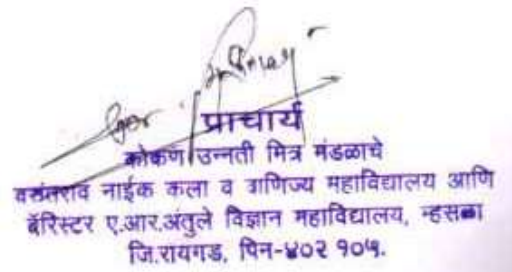 प्राचार्य
कोकण उन्नती मित्र मंडळाचे
वसंतराव नाईक कला व वाणिज्य महाविद्यालय आणि
बॅरिस्टर ए.आर.अंतुले विज्ञान महाविद्यालय, म्हसळा
जि.रायगड, पिन-४०२ १०५.